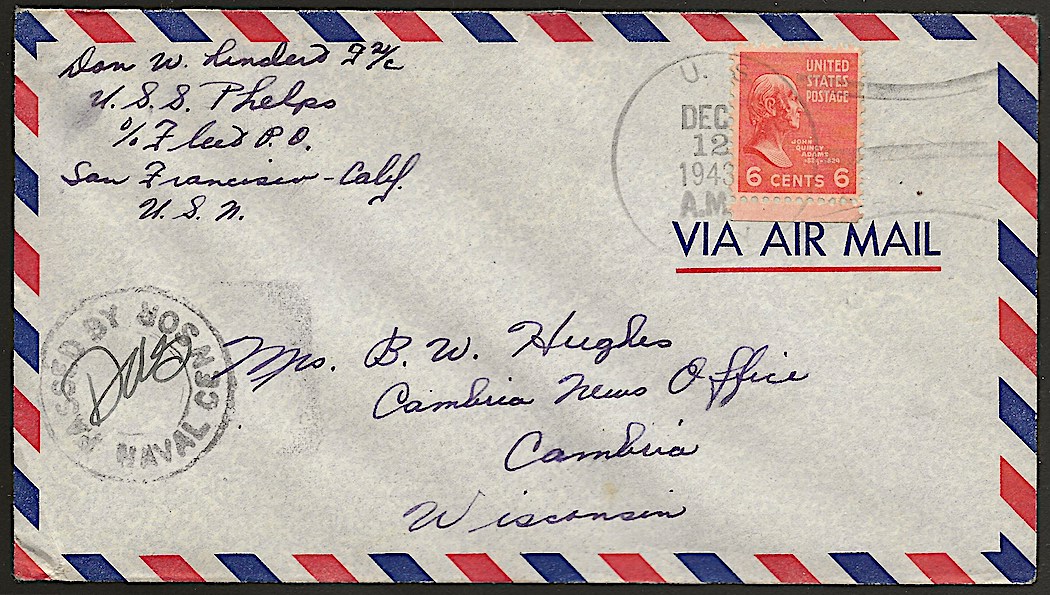 Don W. Lindert F 2/c
U.S.S. Phelps
c/o Fleet P.O.
San Francisco - Calif.
U.S.N.
U. S.
DEC
12
1943
A.M.
UNITED
STATES
POSTAGE
JOHN
QUINCY
ADAMS
6 CENTS 6
VIA AIR MAIL
PASSED BY
NAVAL CENSOR
Mrs. B. W. Hughes
Cambria News Office
Cambria
Wisconsin